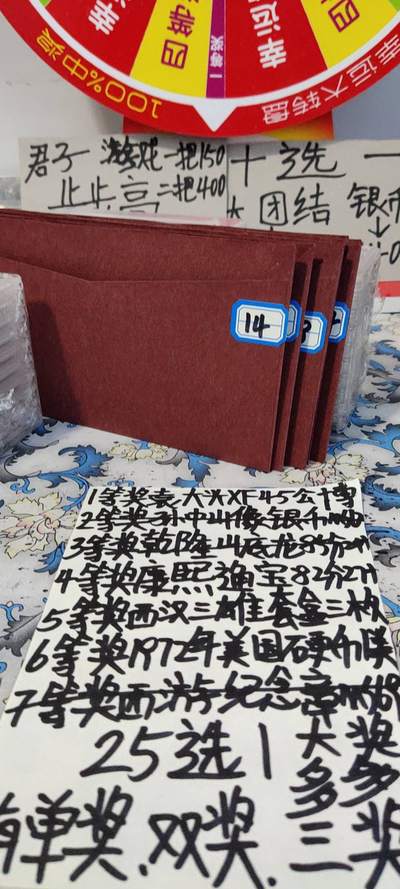 四等
幸运
四
一等奖
100%中奖
幸运大转盘
君子 游戏一把150
止步 二把400
十选一
大团结 银币
14
1等奖袁大头XF45公博
2等奖孙中山像银币
3等奖乾隆山底龙85分
4等奖康熙通宝82分
5等奖西汉三雄套盒三枚
6等奖1972年美国硬币
7等奖西游纪念章
25选1大奖多多
有单奖.双奖.三奖